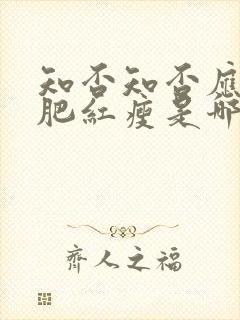 知否知否應
肥紅瘦是哪
齊人之福